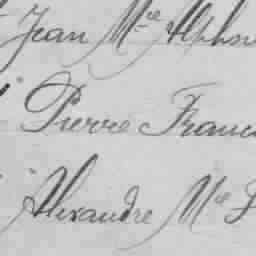 Jean Mie Alphon
" Pierre Franc
" Alexandre Mie